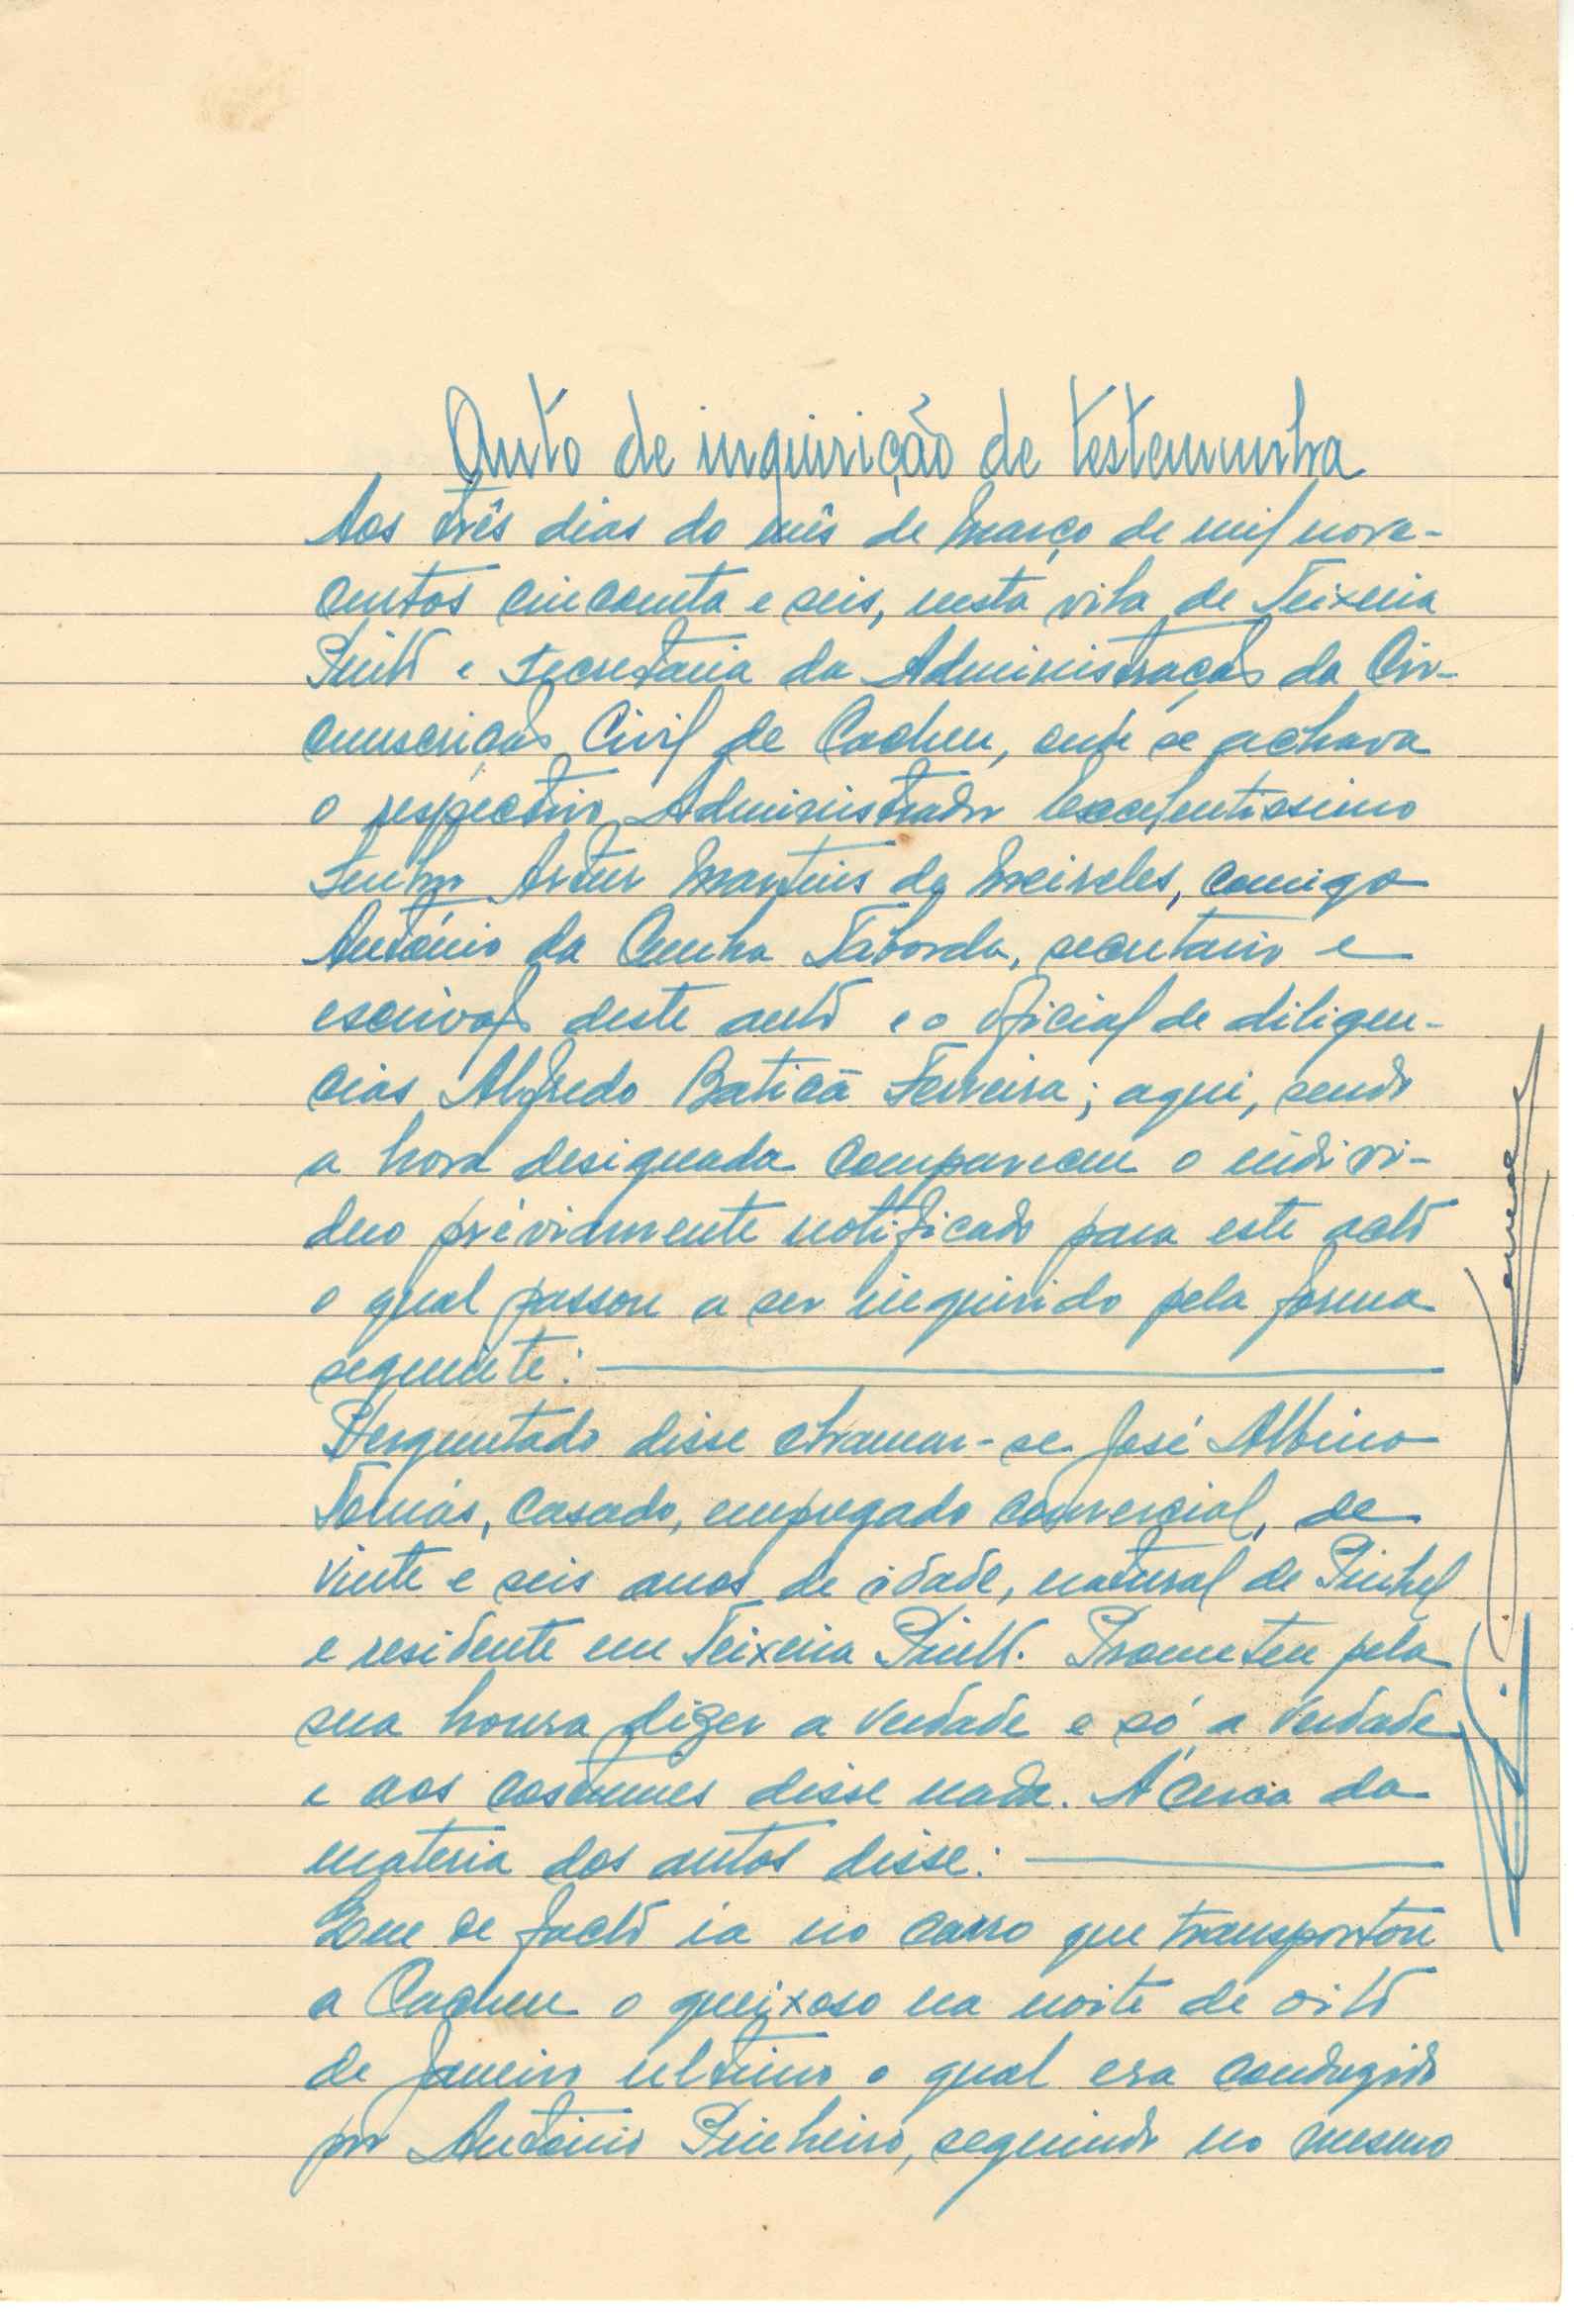 Auto de inquirição de testemunha
Aos três dias do mês de Março de mil nove-
centos cincoenta e seis, nesta vila de Teixeira
Pinto e secretaria da Administração da Cir-
cunscrição Civil de Cacheu, onde se achava
o respectivo Administrador Excelentissimo
Senhor Artur Martins de Meireles, comigo
António da Cunha Taborda, secretario e
escrivão deste auto e o oficial de diligen-
cias Alfredo Baticã Ferreira; aqui, sendo
a hora designada compareceu o indivi-
duo préviamente notificado para este acto
o qual passou a ser inquirido pela forma
seguinte:
Perguntado disse chamar-se José Albino
Tomás, casado, empregado comercial, de
vinte e seis anos de idade, natural de Pinhel
e residente em Teixeira Pinto. Prometeu pela
sua honra dizer a verdade e só a verdade
e aos costumes disse nada. Ácerca da
materia dos autos disse:
Que de facto ia no carro que transportou
a Cacheu o queixoso na noite de oito
de Janeiro ultimo o qual era conduzido
por António Pinheiro, seguindo no mesmo